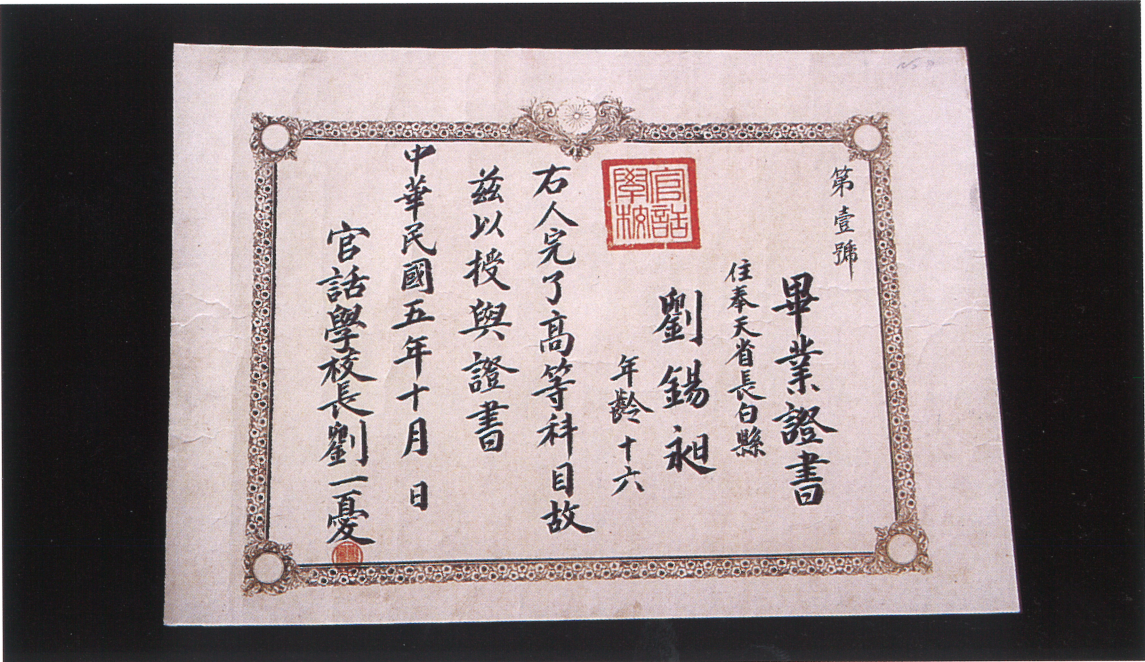 第壹號
畢業證書
住奉天省長白縣
劉錫昶
年齡十六
官話
學校
右人完了高等科目故
茲以授與證書
中華民國五年十月 日
官話學校長劉一憂